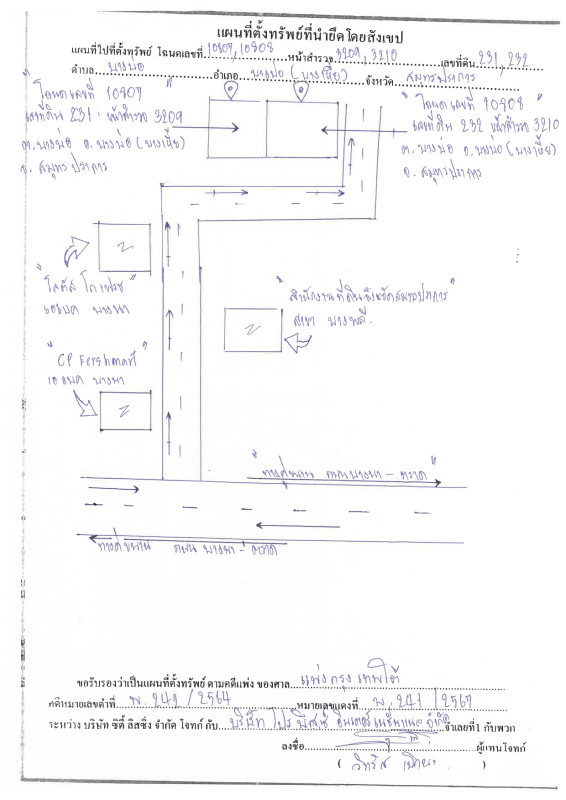 แผนที่ตั้งทรัพย์ที่นำยึดโดยสังเขป
แผนที่ไปที่ตั้งทรัพย์ โฉนดเลขที่ 10807, 10808 หน้าสำรวจ 3209, 3210 เลขที่ดิน 231, 232
ตำบล บางบ่อ อำเภอ บางบ่อ (บางเหี้ย) จังหวัด สมุทรปราการ
"โฉนดเลขที่ 10807"
เลขที่ดิน 231 หน้าสำรวจ 3209
ต. บางบ่อ อ. บางบ่อ (บางเหี้ย)
จ. สมุทรปราการ
"โฉนดเลขที่ 10808"
เลขที่ดิน 232 หน้าสำรวจ 3210
ต. บางบ่อ อ. บางบ่อ (บางเหี้ย)
จ. สมุทรปราการ
"โลตัส โกเฟรช"
เอแบค บางนา
"สำนักงานที่ดินจังหวัดสมุทรปราการ"
สาขา บางพลี.
"CP Fershmart"
เอแบค บางนา
"ทางคู่ขนาน ถนนบางนา - ตราด"
ทางคู่ขนาน ถนน บางนา - ตราด
ขอรับรองว่าเป็นแผนที่ตั้งทรัพย์ ตามคดีแพ่ง ของศาล แพ่งกรุงเทพใต้
คดีหมายเลขดำที่ พ. 241 / 2564 หมายเลขแดงที่ พ. 241 / 2567
ระหว่าง บริษัท ซิตี้ ลิสซิ่ง จำกัด โจทก์ กับ บริษัท โปร มีสซ์ อินเตอร์เนชั่นแนล จำกัด จำเลยที่1 กับพวก
ลงชื่อ ผู้แทนโจทก์
( )